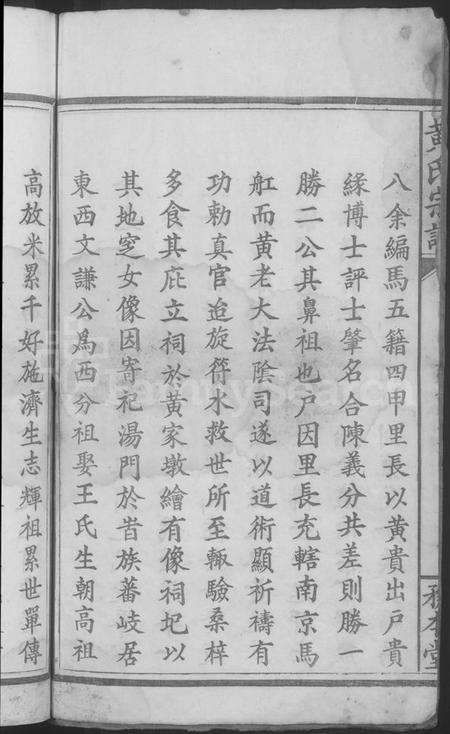 黃氏宗譜
八余編馬五籍四甲里長以黃貴出戶貴
緣博士評士肇名合陳義分共差則勝一
勝二公其鼻祖也戶因里長充轄南京馬
舡而黃老大法陰司遂以道術顯祈禱有
功勅真官迨旋符水救世所至輒驗桑梓
多食其庇立祠於黃家墩繪有像祠圮以
其地窆女像因寄祀湯門於旹族蕃岐居
東西文謙公爲西分祖娶王氏生朝高祖
高放米累千好施濟生志輝祖累世單傳
務本堂
FamilySearch